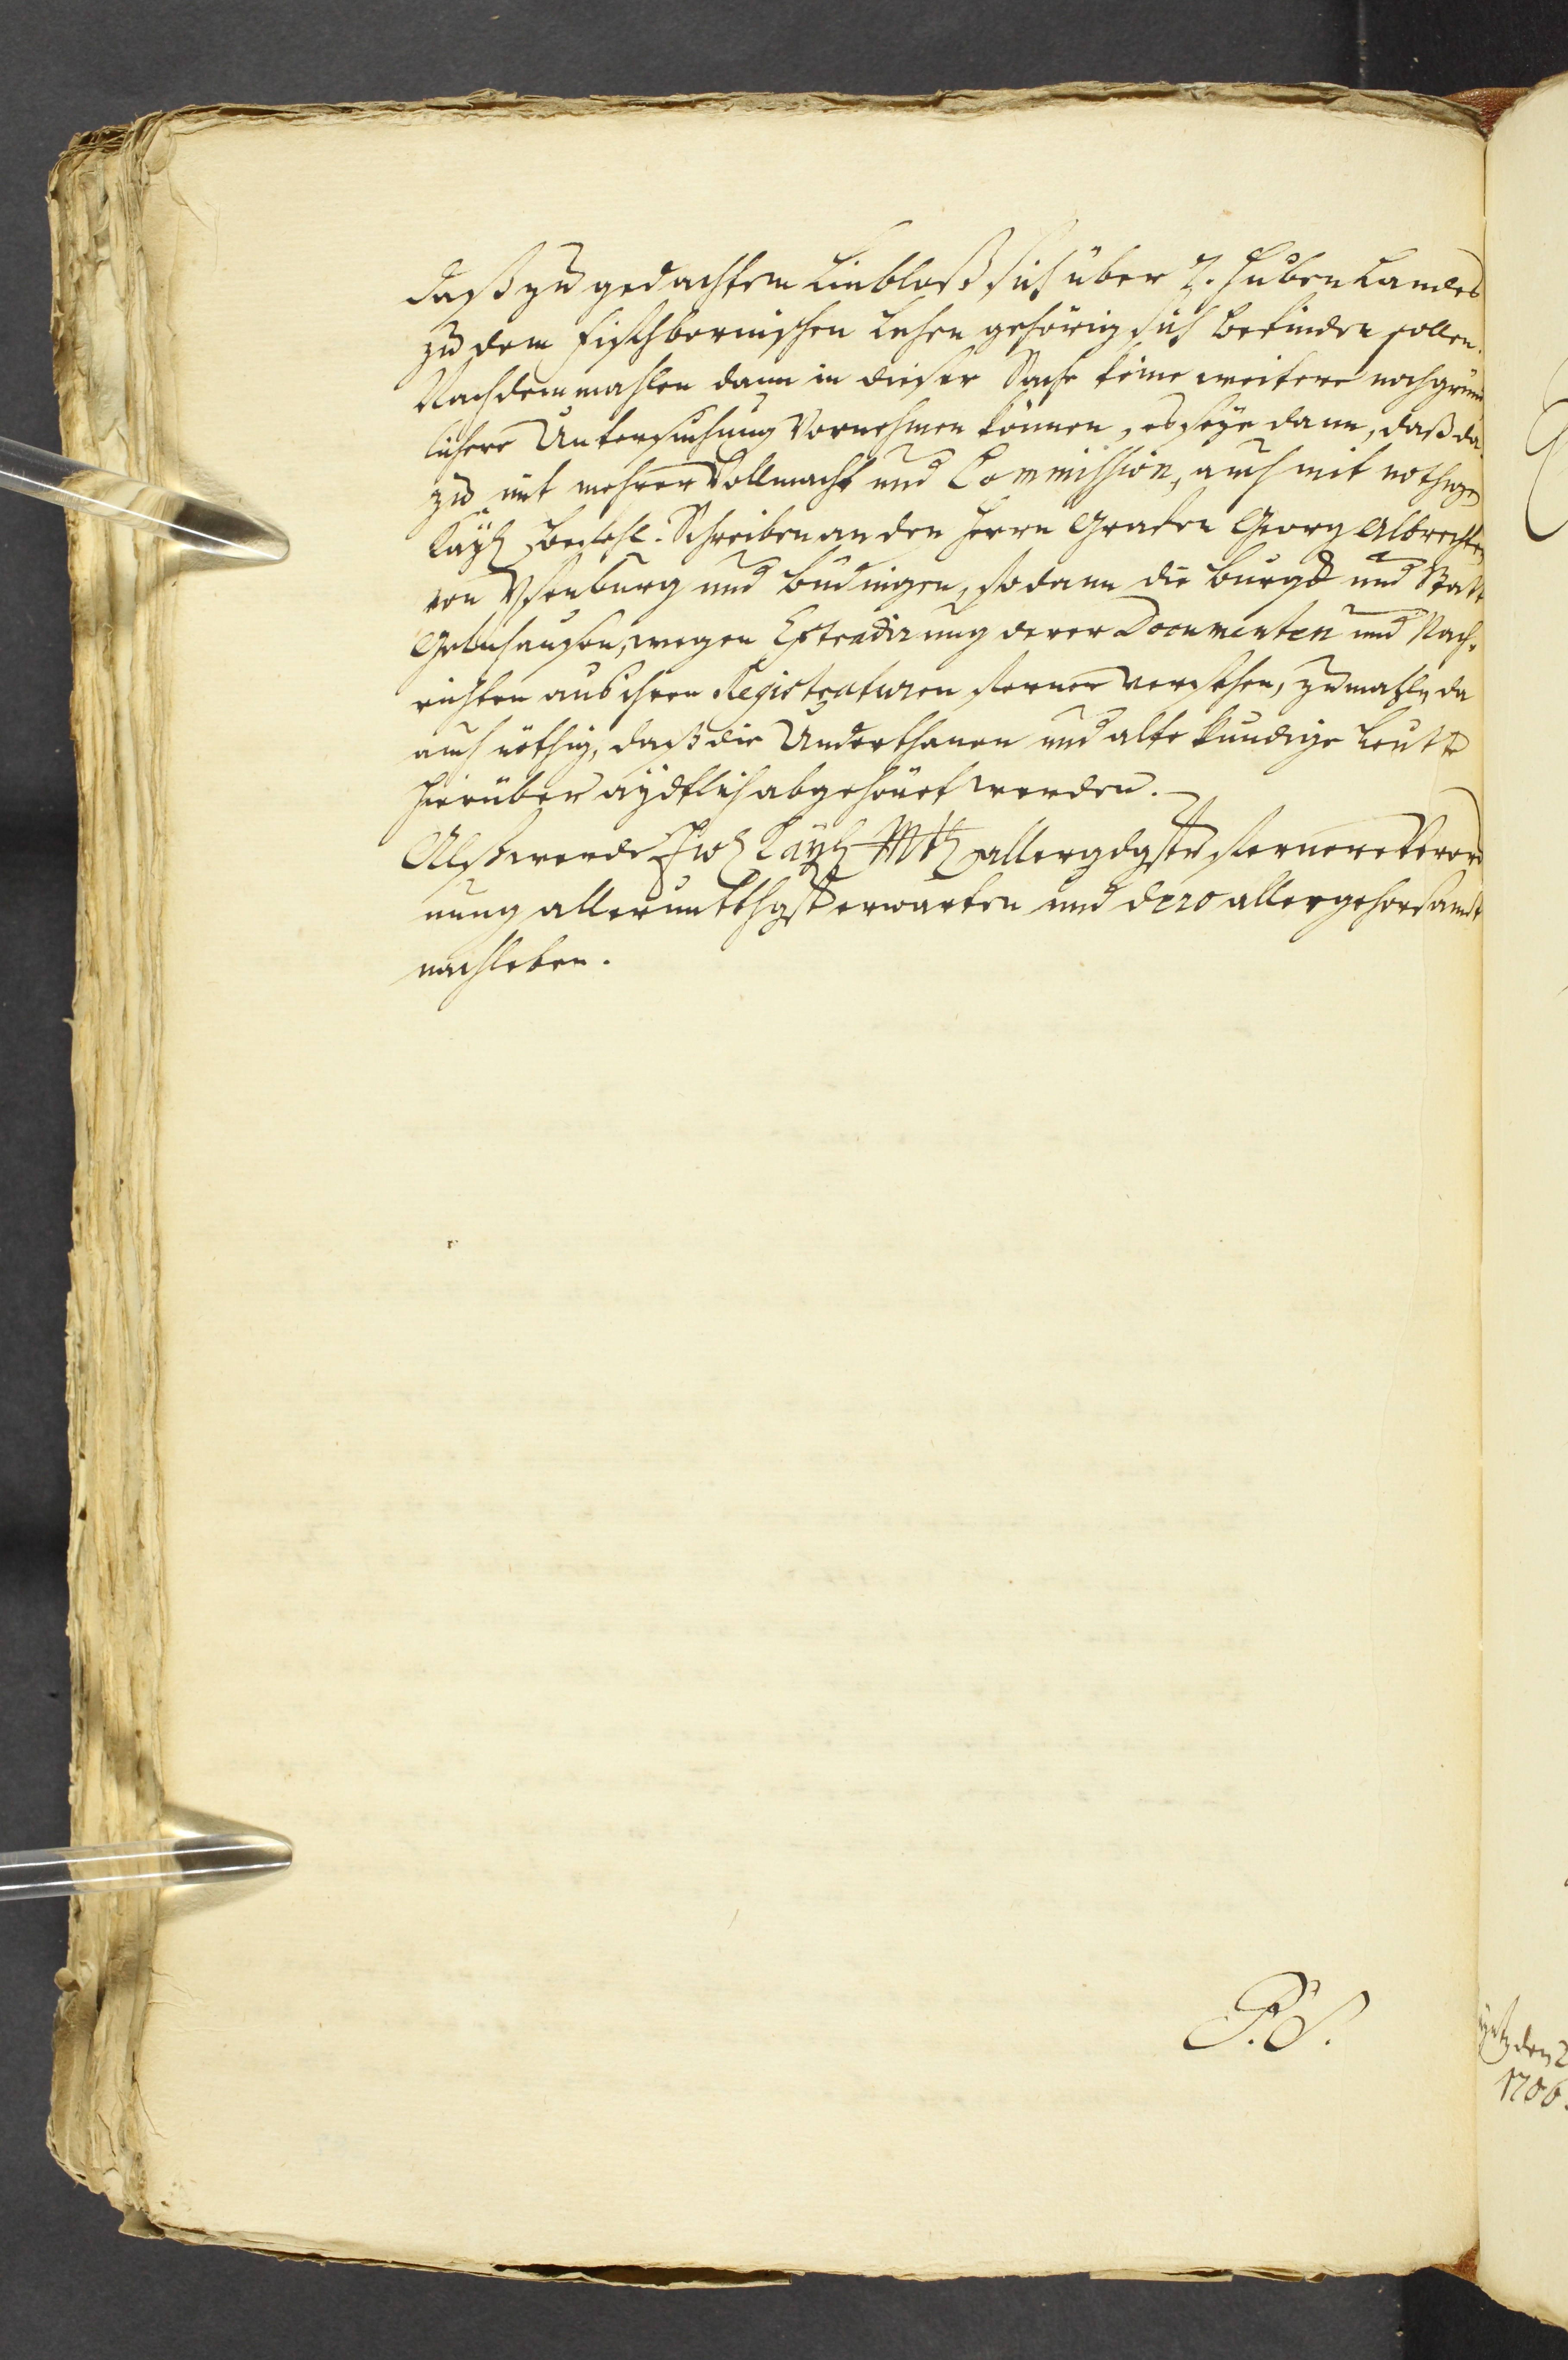 daß zu gedachtem Linbloß sich über 7. Huben Landes
zu dem Fischbornischen Lehen gehörig sich befinden sollen.
Nachdemmahlen dann in dieser Sache keine weitere noch gründ
lichere Untersuchung Vornehmen können, es seye dann, daß da
zu mit mehrer Vollmacht und Commission, auch mit nothigen
Kayl Befehl-Schreiben an den Herrn Grafen Georg Albrechten
von Ysenburg und Budingen, sodann die Burg und Statt
Gelnhausen, wegen Extradirung derer Documenten und Nach-
richten aus ihren Registraturen ferner versehen, zumahln da
auch nöthig, daß die Underthanen und alte kundige Leutte
hierüber aydtlich abgehöret werden.
Alß werde Ew Kayl Mtt allergdgste fernere Verord
nung alleruntthgst erwarten und dero allergehorsambst
nachleben.
P. S.
den 2
1706.